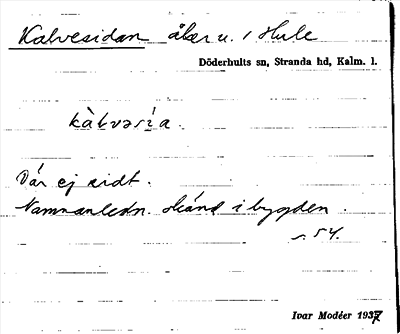 Kalvesidan åker u. / Hule
Döderhults sn, Stranda hd, Kalm. l.
kàlvəsìa.
Där ej sidt.
Namnanledn. okänd i bygden.
s. 54.
Ivar Modéer 1937